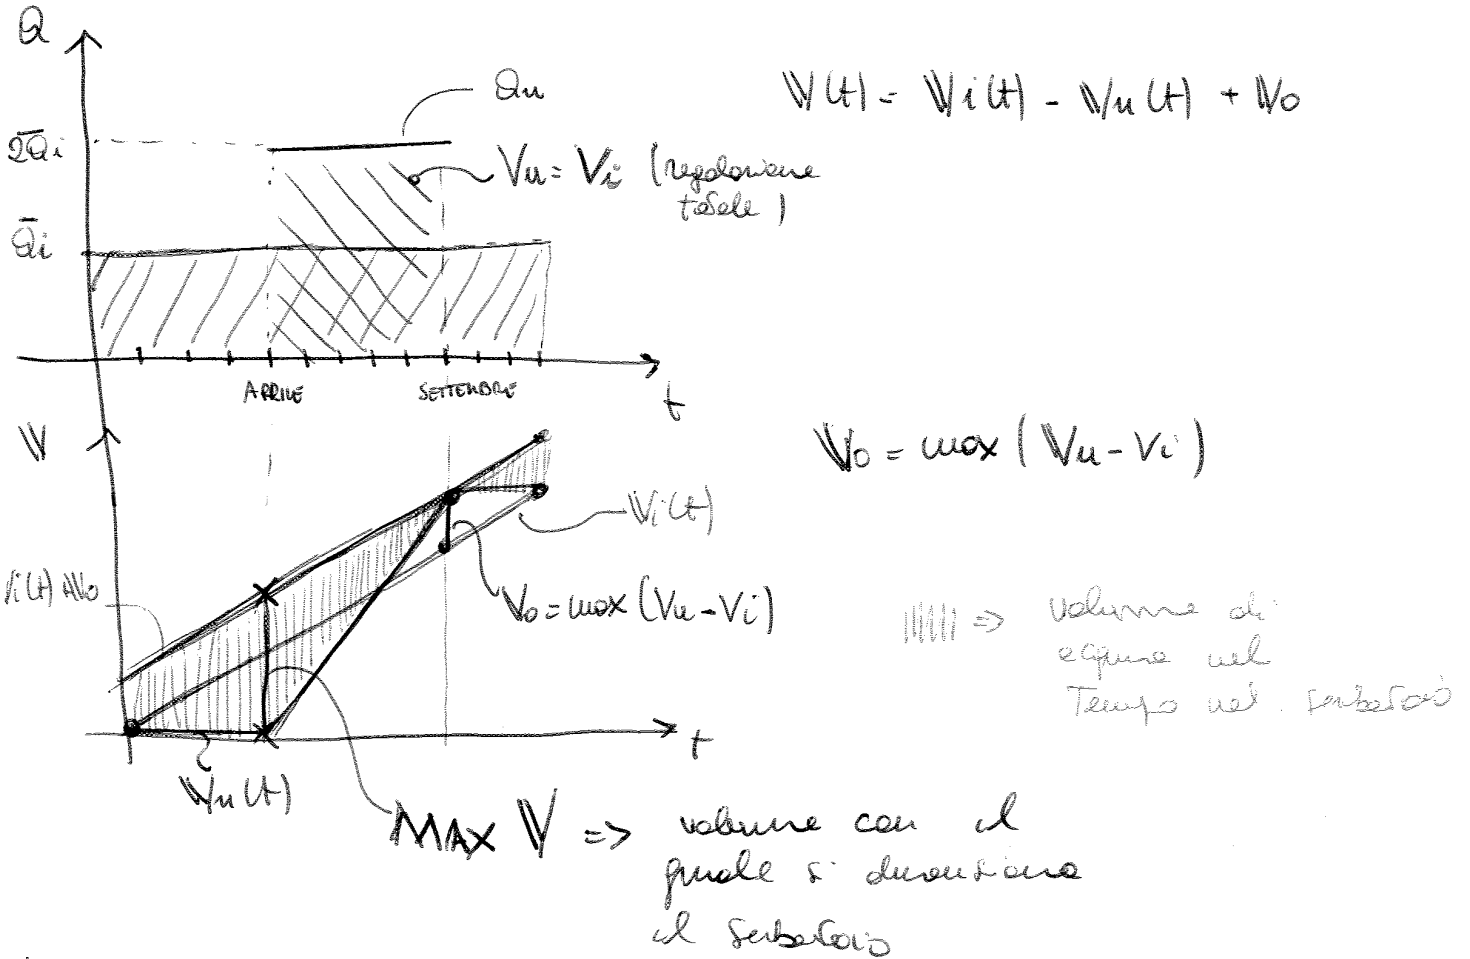 Q
Qu
V(t) = Vi(t) - Vu(t) + V0
2Q̄i
Vu = Vi (regolazione
totale)
Q̄i
APRILE
SETTEMBRE
t
V
V0 = max (Vu - Vi)
Vi(t)
Vi(t) + V0
V0 = max (Vu - Vi)
=> volume di
acqua nel
Tempo nel serbatoio
t
Vu(t)
MAX V => volume con il
quale si dimensiona
il serbatoio